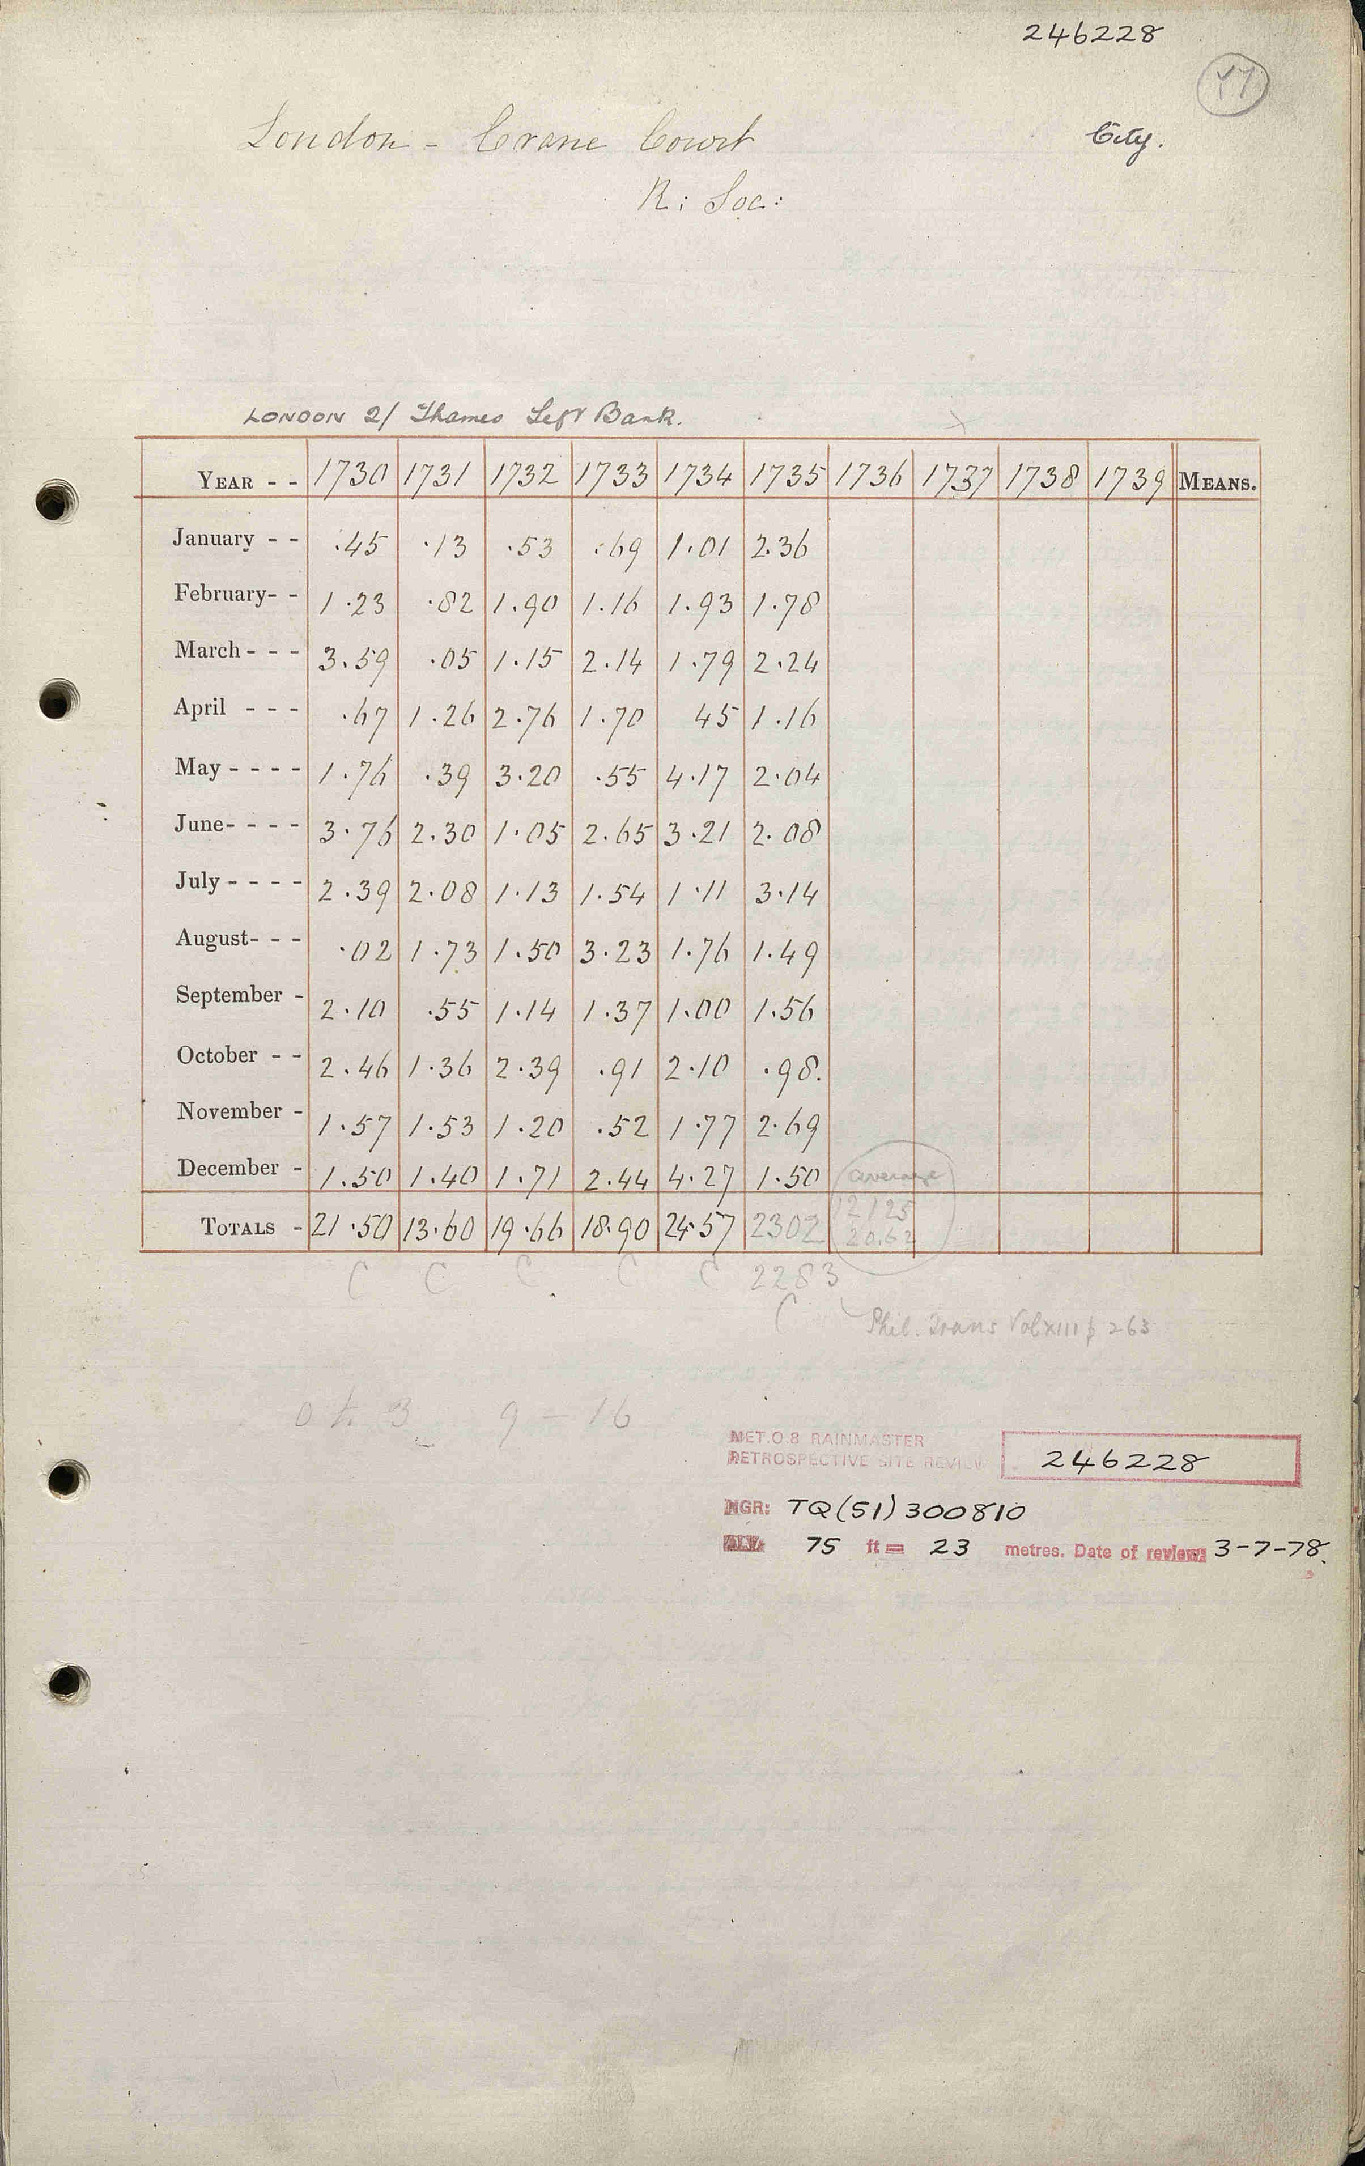 246228
London - Crane Court
City.
R: Soc:
LONDON 2/ Thames Left Bank.
YEAR - - 1730 1731 1732 1733 1734 1735 1736 1737 1738 1739 MEANS.
January - - .45 .13 .53 .69 1.01 2.36
February- - 1.23 .82 1.90 1.16 1.93 1.78
March - - - 3.59 .05 1.15 2.14 1.79 2.24
April - - - .67 1.26 2.76 1.70 45 1.16
May - - - - 1.76 .39 3.20 .55 4.17 2.04
June- - - - 3.76 2.30 1.05 2.65 3.21 2.08
July - - - - 2.39 2.08 1.13 1.54 1.11 3.14
August- - - .02 1.73 1.50 3.23 1.76 1.49
September - 2.10 .55 1.14 1.37 1.00 1.56
October - - 2.46 1.36 2.39 .91 2.10 .98.
November - 1.57 1.53 1.20 .52 1.77 2.69
December - 1.50 1.40 1.71 2.44 4.27 1.50 average
TOTALS - 21.50 13.60 19.66 18.90 24.57 2302 20.62
C C C C C 2283
C
Phil. Trans Vol XIII p 263
9 - 16
MET.O.8 RAINMASTER
RETROSPECTIVE SITE REVIEW 246228
NGR: TQ(51)300810
ALT: 75 ft = 23 metres. Date of review: 3-7-78.